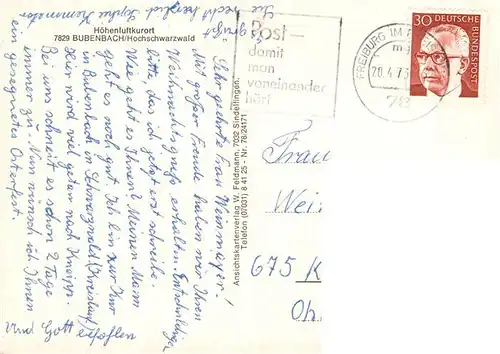 Höhenluftkurort
7829 BUBENBACH/Hochschwarzwald
Sehr geehrte Frau Weinmayer!
Mit großer Freude haben wir Ihren
Weihnachtsgruß erhalten. Entschuldigen
bitte, das ich jetzt erst schreibe.
Wie geht es Ihnen? Meinem Mann
geht es noch gut. Ich bin zur Kur
in Bubenbach im Schwarzwald
Hier wird viel getan nach Kneipp.
Bei uns schneit es schon 2 Tage
immer zu. Nun wünsch ich Ihnen
ein gesegnetes Osterfest.
Und Gott befohlen
Sie recht herzlich
grüßt
Ansichtskartenverlag W. Feldmann, 7032 Sindelfingen,
Telefon (07031) 8 41 25 - Nr. 78/24171
Post–
damit
man
voneinander
hört
FREIBURG IM
20.4.73
30 DEUTSCHE
BUNDESPOST
Frau
Wei
675 K